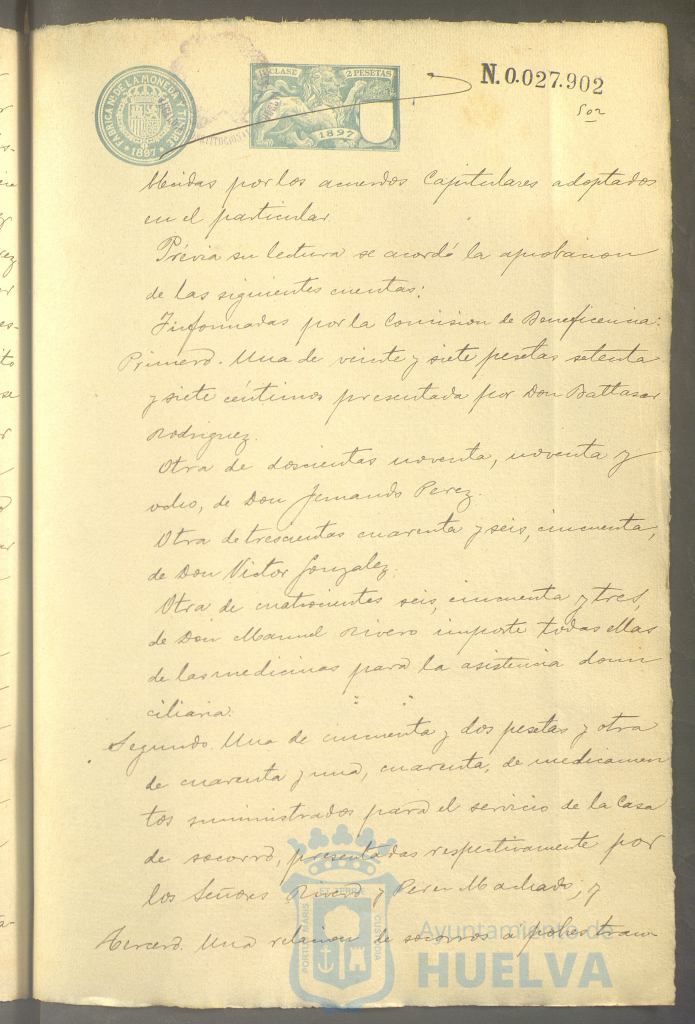 FABRICA NAL DE LA MONEDA Y TIMBRE
* 1897 *
11ª CLASE 2 PESETAS
1897
N.0.027.902
blecidas por los acuerdos Capitulares adoptados
en el particular.
Prévia su lectura se acordó la aprobacion
de las siguientes cuentas:
Informadas por la Comision de Beneficencia:
Primero. Una de veinte y siete pesetas setenta
y siete céntimos presentada por Don Baltasar
Rodriguez.
Otra de doscientas noventa, noventa y
ocho, de Don Fernando Perez.
Otra de trescientas cuarenta y seis, cincuenta,
de Don Victor Gonzalez.
Otra de cuatrocientas seis, cincuenta y tres,
de Don Manuel Rivero importe todas ellas
de las medicinas para la asistencia domi
ciliaria.
Segundo. Una de cincuenta y dos pesetas y otra
de cuarenta y una, cuarenta, de medicamen
tos suministrados para el servicio de la Casa
de socorro, presentadas respectivamente por
los Señores Rivero y Perez Machado; y
Tercero. Una relacion de socorros a pobres tran-
PORTUS MARIS ET TERRE CUSTODIA
Ayuntamiento de
HUELVA